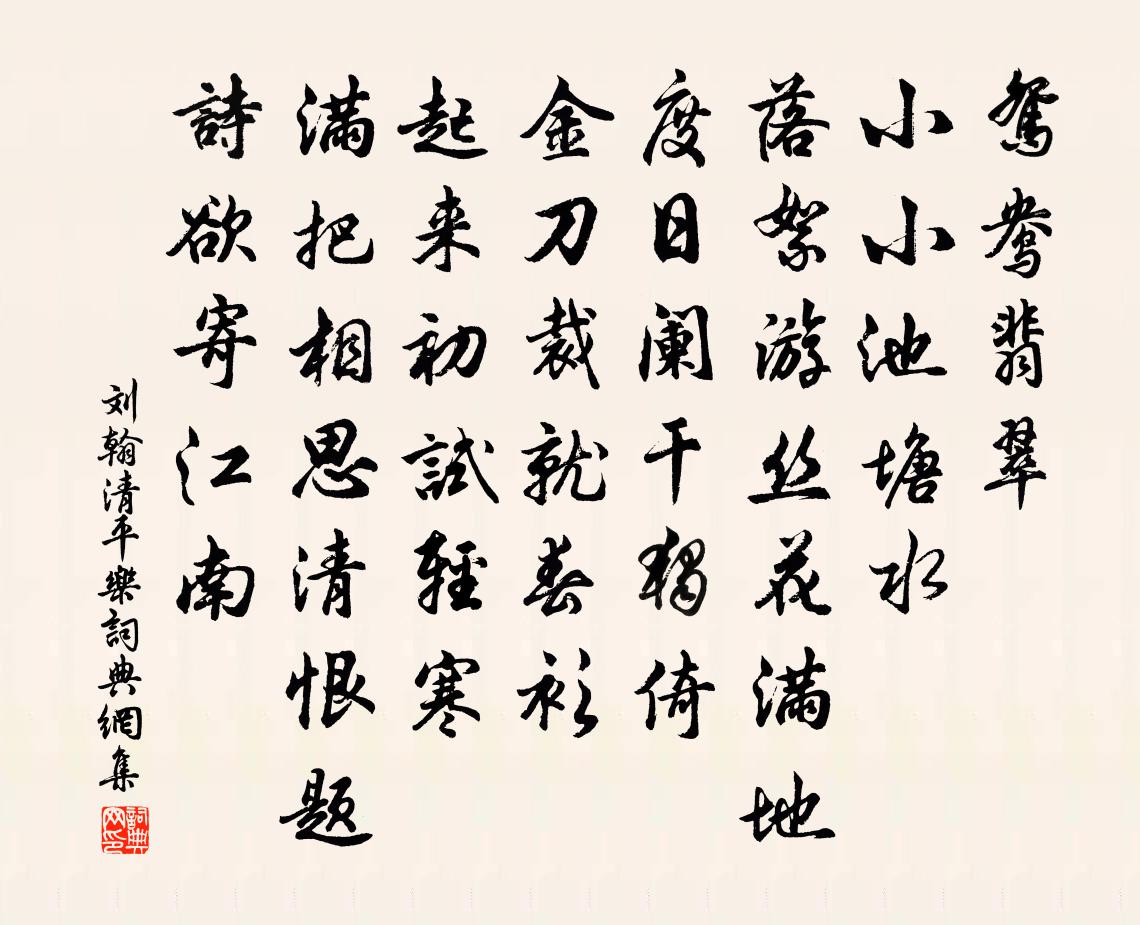 鴛鴦翡翠
小小池塘水
落絮游丝花满地
度日阑干獨倚
金刀裁就春衫
起来初試輕寒
满把相思清恨题
詩欲寄江南
刘翰清平樂詞典網集
詞典网印